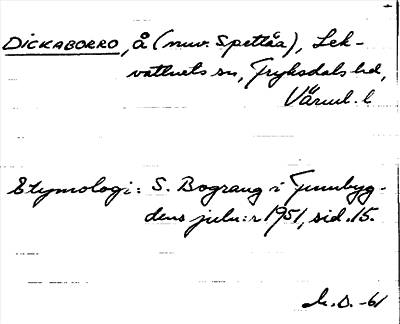 DICKABORRO, å (nuv. Spettåa), Lek-
vattnets sn, Fryksdals hd,
Värml. l
Etymologi: S. Bograng i Finnbyg-
dens julnr 1951, sid. 15.
D. -61